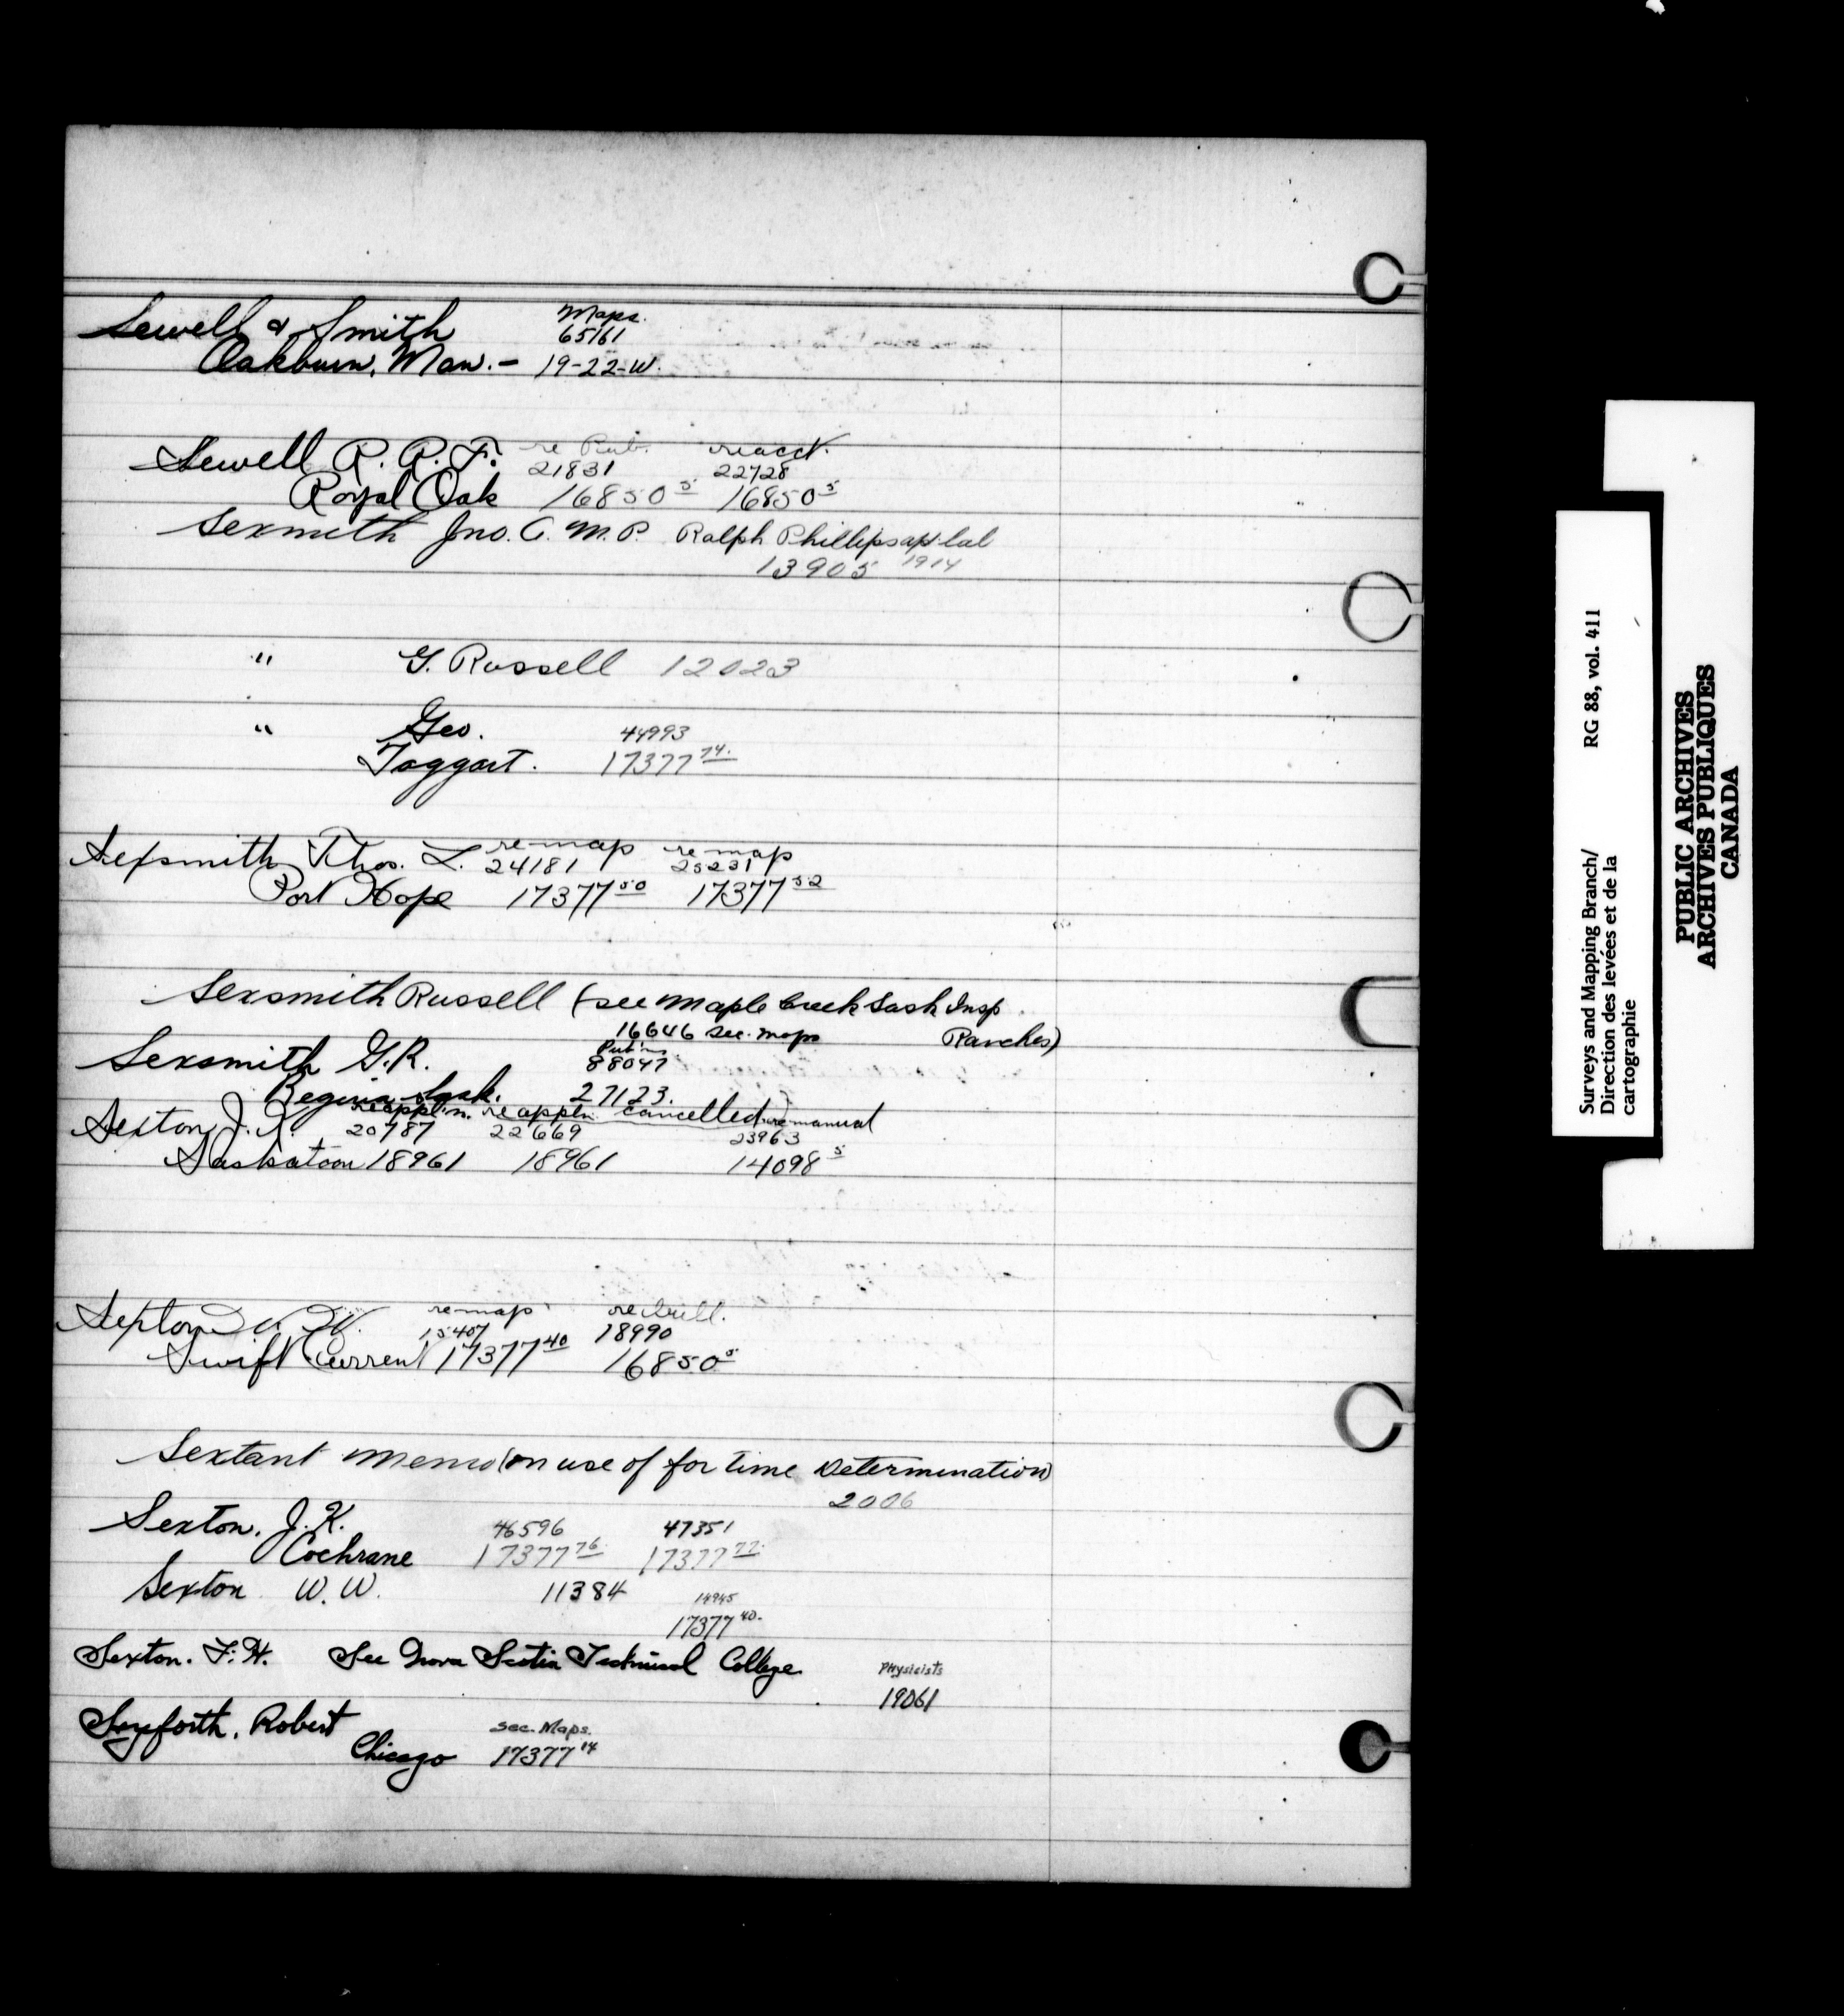 Maps.
Sewell & Smith 65161
Oakburn, Man. - 19-22-W.
re Pub. re acct.
Sewell R. R. F. 21831 22728
Royal Oak 16850 5 16850 5
Sexmith Jno. A. M.P. Ralph Phillips
13905 1914
" G. Russell 12023
" Geo. 44993
Taggart. 17377 74.
re map re map
Sexsmith Thos. L. 24181 25231
Port Hope 17377 50 17377 52
Sexsmith Russell (see Maple Creek Sask Insp
16646 Sec. Maps Ranches)
Pub'ns
Sexsmith G.R. 88047
Regina Sask. 27123.
re appl'n. re appln. cancelled re manual
Sexton J. 20787 22669 23963
Saskatoon 18961 18961 14098 5
re map re bull.
Sexton W. 15407 18990
Swift Current 17377 40 16850 5
Sextant Memo (on use of for time Determination)
2006
Sexton. J. K. 46596 47351
Cochrane 17377 76. 17377 77.
Sexton W. W. 11384 14945
17377 40.
Sexton. F. H. See Nova Scotia Technical College Physicists
19061
Seyforth, Robert Sec. Maps.
Chicago 17377 14
Surveys and Mapping Branch/ RG 88, vol. 411
Direction des levées et de la
cartographie
PUBLIC ARCHIVES
ARCHIVES PUBLIQUES
CANADA